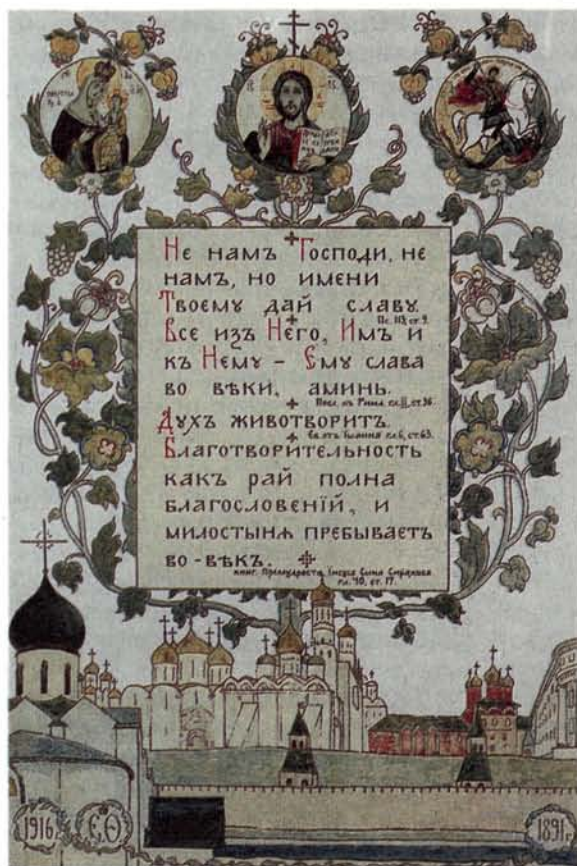 Не намъ Господи, не
намъ, но имени
Твоему дай славу.
Пс. 113, ст. 9.
Все изъ Него, Имъ и
къ Нему – Ему слава
во вѣки, аминь.
Посл. къ Римл. гл. II, ст. 36.
Духъ животворитъ.
Ев. отъ Іоанна гл. 6, ст. 63.
Благотворительность
какъ рай полна
благословеній, и
милостынѧ пребываетъ
во-вѣкъ.
книг. Премудрости Іисуса Сына Сирахова
гл. 40, ст. 17.
1916
Є.Ѳ
1891г.